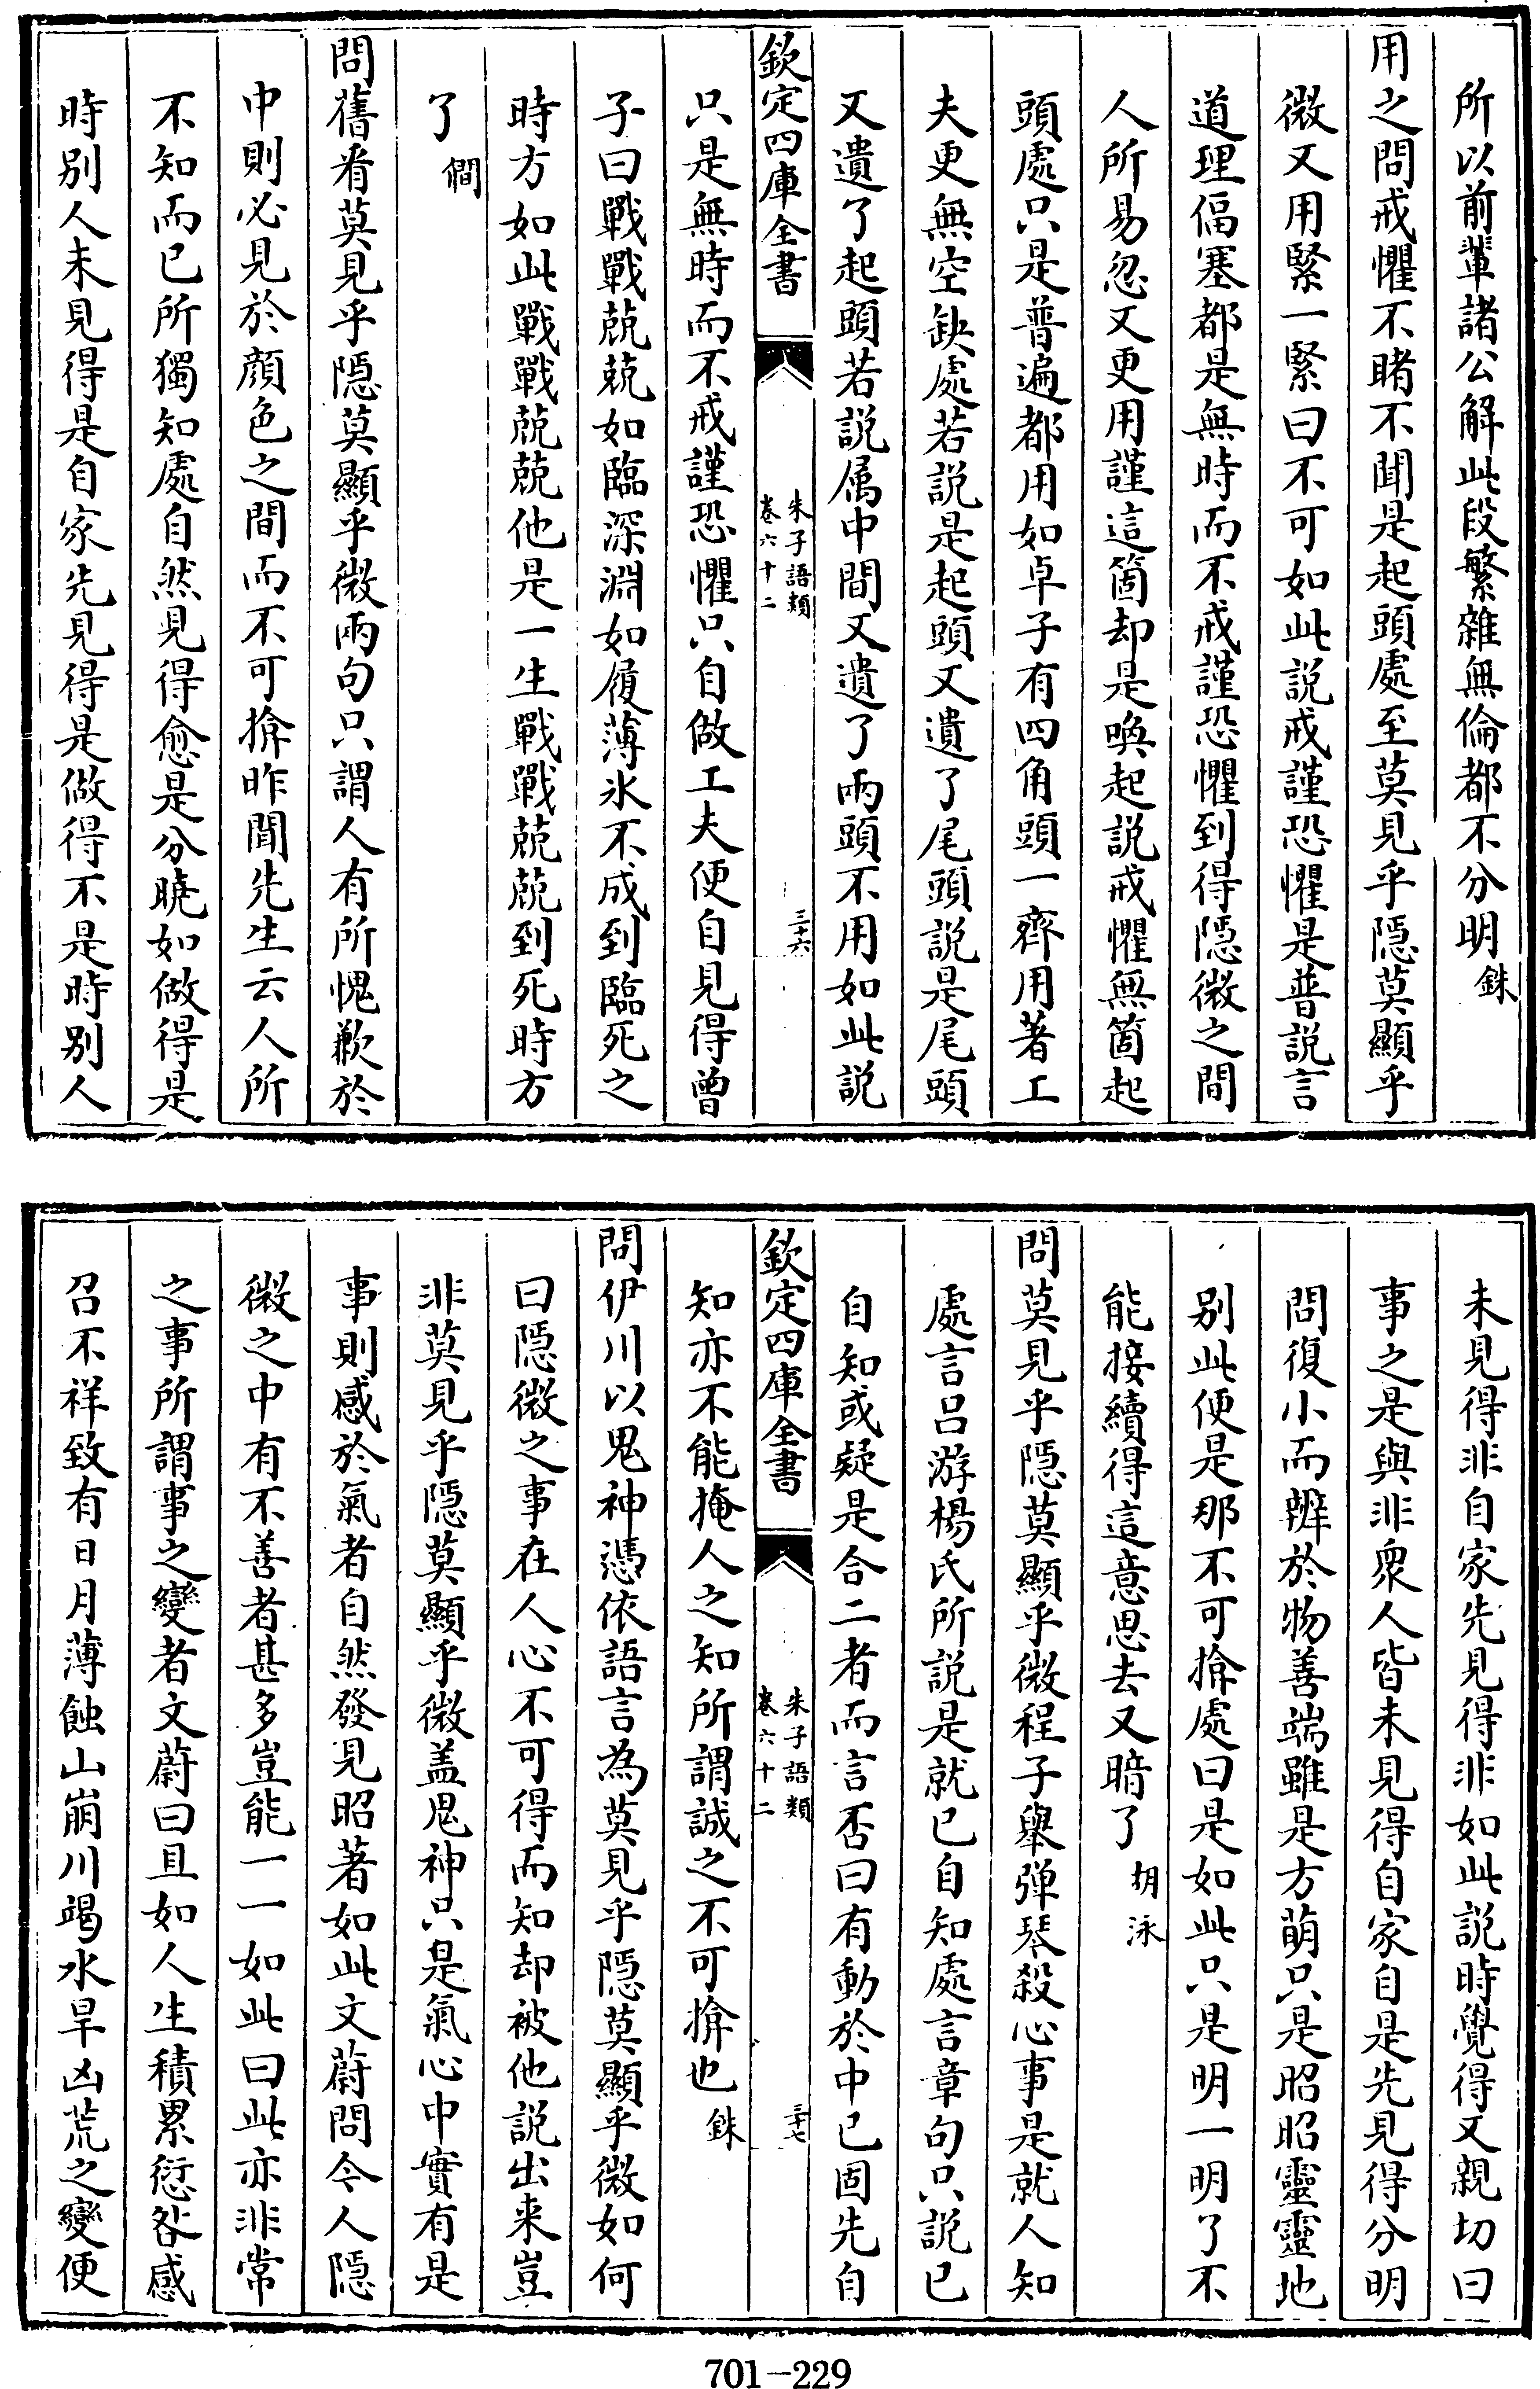 所以前輩諸公解此段繁雜無倫都不分明銖
用之問戒懼不睹不聞是起頭處至莫見乎隠莫顯乎
微又用緊一緊曰不可如此説戒謹恐懼是普説言
道理偪塞都是無時而不戒謹恐懼到得隠微之間
人所易忽又更用謹這箇却是喚起説戒懼無箇起
頭處只是普遍都用如卓子有四角頭一齊用著工
夫更無空缺處若説是起頭又遺了尾頭説是尾頭
又遺了起頭若説属中間又遺了兩頭不用如此説
欽定四庫全書
朱子語類
卷六十二
三十六
只是無時而不戒謹恐懼只自做工夫便自見得曾
子曰戰戰兢兢如臨深淵如履薄氷不成到臨死之
時方如此戰戰兢兢他是一生戰戰兢兢到死時方
了僩
問舊看莫見乎隠莫顯乎微兩句只謂人有所愧歉於
中則必見於顔色之間而不可揜昨聞先生云人所
不知而已所獨知處自然見得愈是分曉如做得是
時别人未見得是自家先見得是做得不是時别人
未見得非自家先見得非如此説時覺得又親切曰
事之是與非衆人皆未見得自家自是先見得分明
問復小而辨於物善端雖是方萌只是昭昭靈靈地
别此便是那不可揜處曰是如此只是明一明了不
能接續得這意思去又暗了胡泳
問莫見乎隠莫顯乎微程子舉弹琴殺心事是就人知
處言吕游楊氏所説是就已自知處言章句只説已
自知或疑是合二者而言否曰有動於中已固先自
欽定四庫全書
朱子語類
卷六十二
三十七
知亦不能掩人之知所謂誠之不可揜也銖
問伊川以鬼神憑依語言為莫見乎隠莫顯乎微如何
曰隠微之事在人心不可得而知却被他説出来豈
非莫見乎隠莫顯乎微盖鬼神只是氣心中實有是
事則感於氣者自然發見昭著如此文蔚問今人隠
微之中有不善者甚多豈能一一如此曰此亦非常
之事所謂事之變者文蔚曰且如人生積累愆咎感
召不祥致有日月薄蝕山崩川竭水旱凶荒之變便
701-229